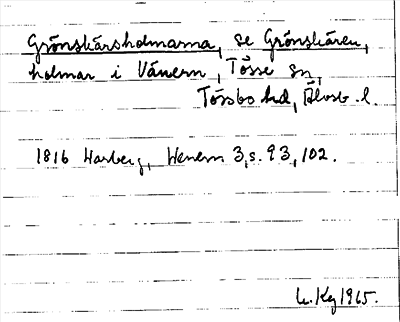 Grönskärsholmarna, se Grönskären,
holmar i Vänern, Tösse sn,
Tössbo hd, Älvsb. l.
1816 Warberg, Wenern 3, s. 93, 102.
1965.